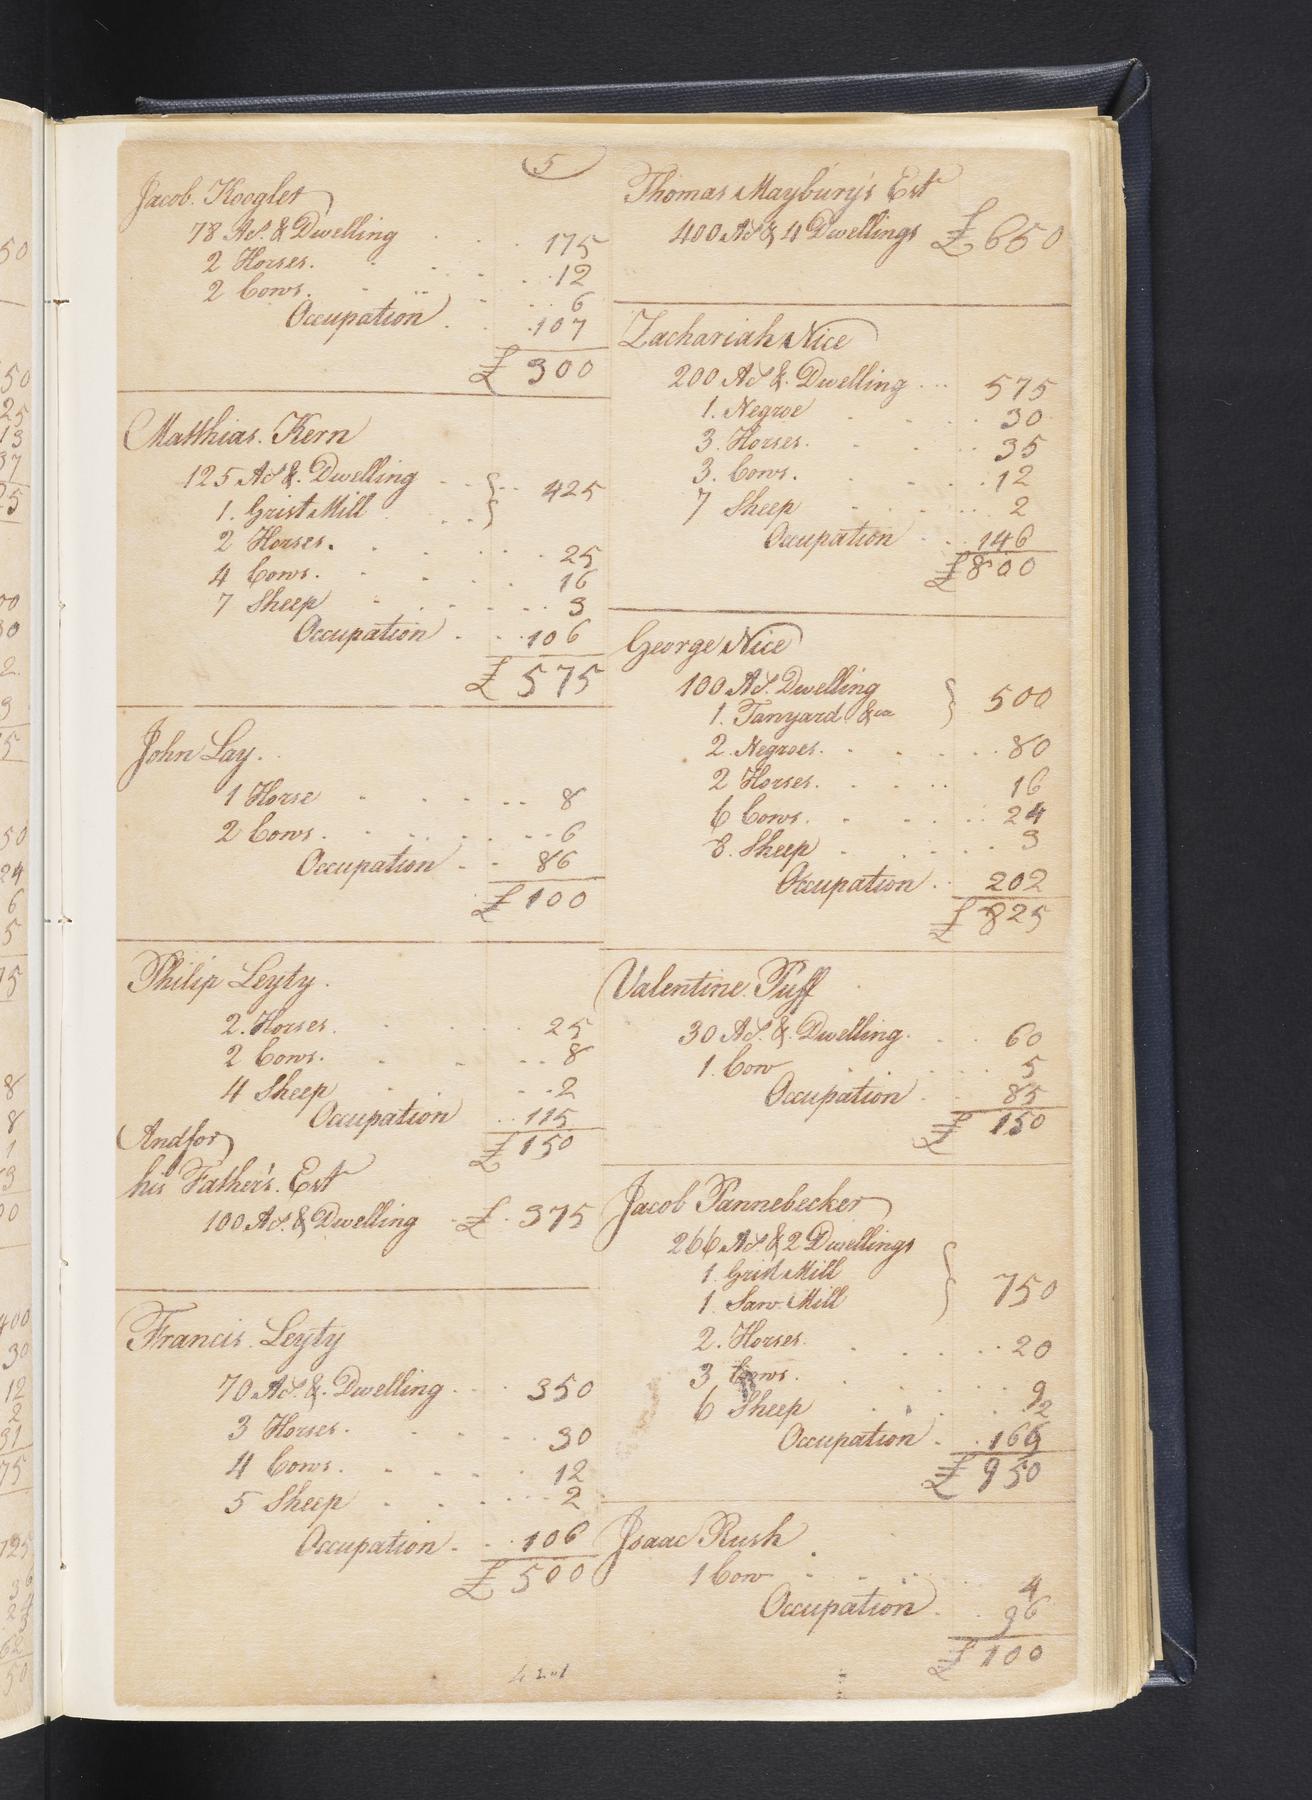 5
Jacob. Koogler
78 As. & Dwelling 175
2 Horses. 12
2 Cows. 6
Occupation 107
£ 300
Matthias. Kern
125 As. & Dwelling
1. Grist Mill 425
2 Horses. 25
4 Cows. 16
7 Sheep 3
Occupation 106
£ 575
John Lay.
1 Horse 8
2 Cows. 6
Occupation 86
£ 100
Philip Leyty.
2. Horses. 25
2 Cows. 8
4 Sheep 2
Occupation 115
£ 150
And for
his Father's. Est
100 As. & Dwelling £. 375
Francis. Leyty
70 As. & Dwelling 350
3 Horses. 30
4 Cows. 12
5 Sheep 2
Occupation 106
£ 500
Thomas Maybury's Est
400 As & 4 Dwellings £650
Zachariah Nice
200 As & Dwelling 575
1. Negroe 30
3. Horses. 35
3. Cows. 12
7 Sheep 2
Occupation 146
£800
George Nice
100 As. Dwelling
1. Tanyard &ca 500
2. Negroes. 80
2 Horses. 16
6 Cows. 24
8. Sheep 3
Occupation 202
£ 825
Valentine. Puff
30 As. & Dwelling. 60
1. Cow 5
Occupation 85
£ 150
Jacob Pannebecker
266 As. & 2 Dwellings
1. Grist Mill
1. Saw. Mill 750
2. Horses. 20
3 Cows. 9
6 Sheep 2
Occupation
£ 950
Isaac Rush
1 Cow 4
Occupation 96
£ 100